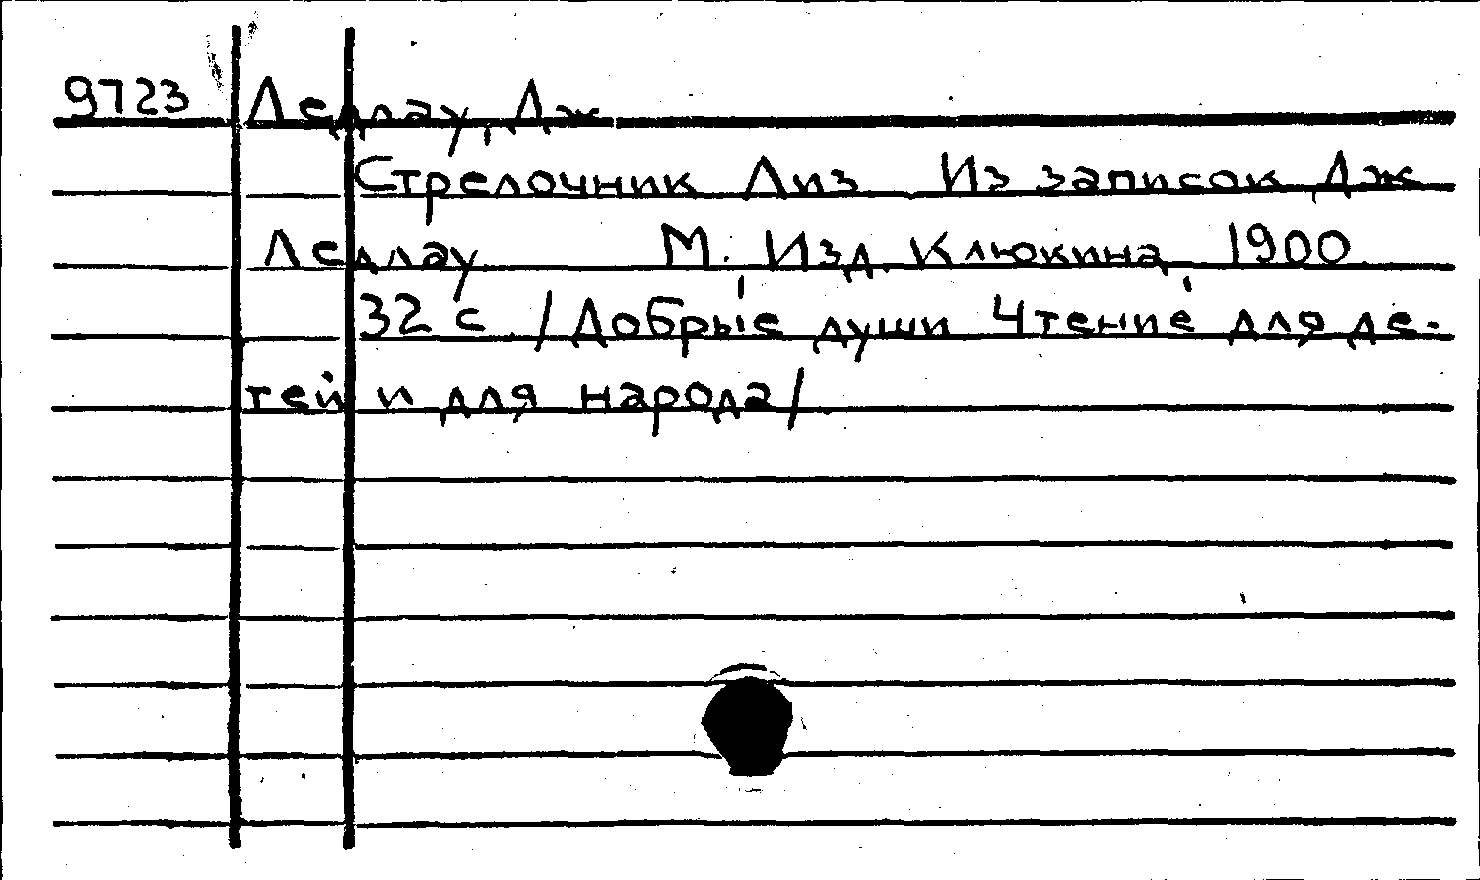 9723 Ледлау, Дж
Стрелочник Лиз. Из записок Дж
Ледлау М., Изд. Клюкина, 1900.
32 с. /Добрые души Чтение для де-
тей и для народа/.